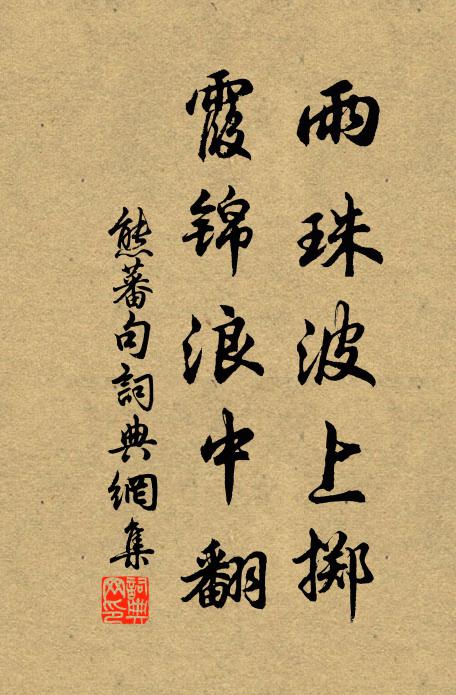 雨珠波上掷
霞锦浪中翻
熊蕃句詞典網集
詞典网印